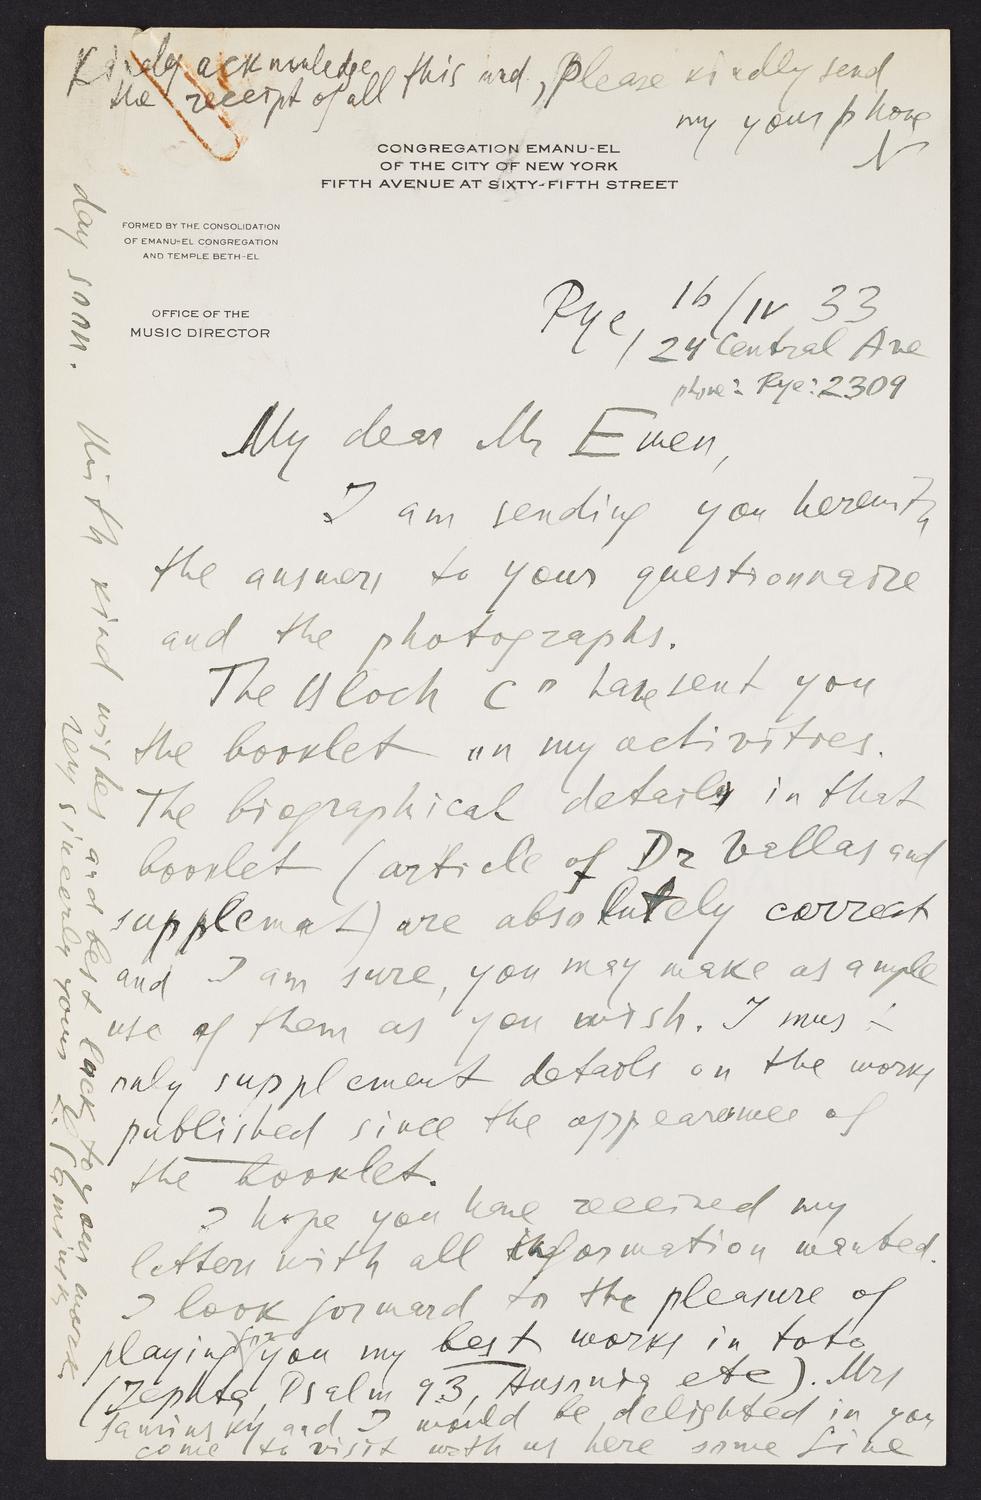 Kindly acknowledge
the receipt of all this and, please kindly send
my your phone
N
CONGREGATION EMANU-EL
OF THE CITY OF NEW YORK
FIFTH AVENUE AT SIXTY-FIFTH STREET
FORMED BY THE CONSOLIDATION
OF EMANU-EL CONGREGATION
AND TEMPLE BETH-EL
OFFICE OF THE
MUSIC DIRECTOR
Rye, 16/IV 33
24 Central Ave
phone: Rye: 2309
My dear Mr Ewen,
I am sending you herewith
the answers to your questionnaire
and the photographs.
The Bloch Co have sent you
the booklet on my activities.
The biographical details in that
booklet (article of Dr Vallas and
supplemat) are absolutely correct
and I am sure, you may make as ample
use of them as you wish. I must
only supplement details on the works
published since the appearance of
the booklet.
I hope you have received my
letters with all information wanted.
I look forward to the pleasure of
playing for you my best works in toto
(Jephta, Psalm 93, Ausonia etc). Mrs
Saminsky and I would be delighted in you
come to visit with us here some fine
day soon. With kind wishes and best luck to your work
very sincerely yours L. Saminsky